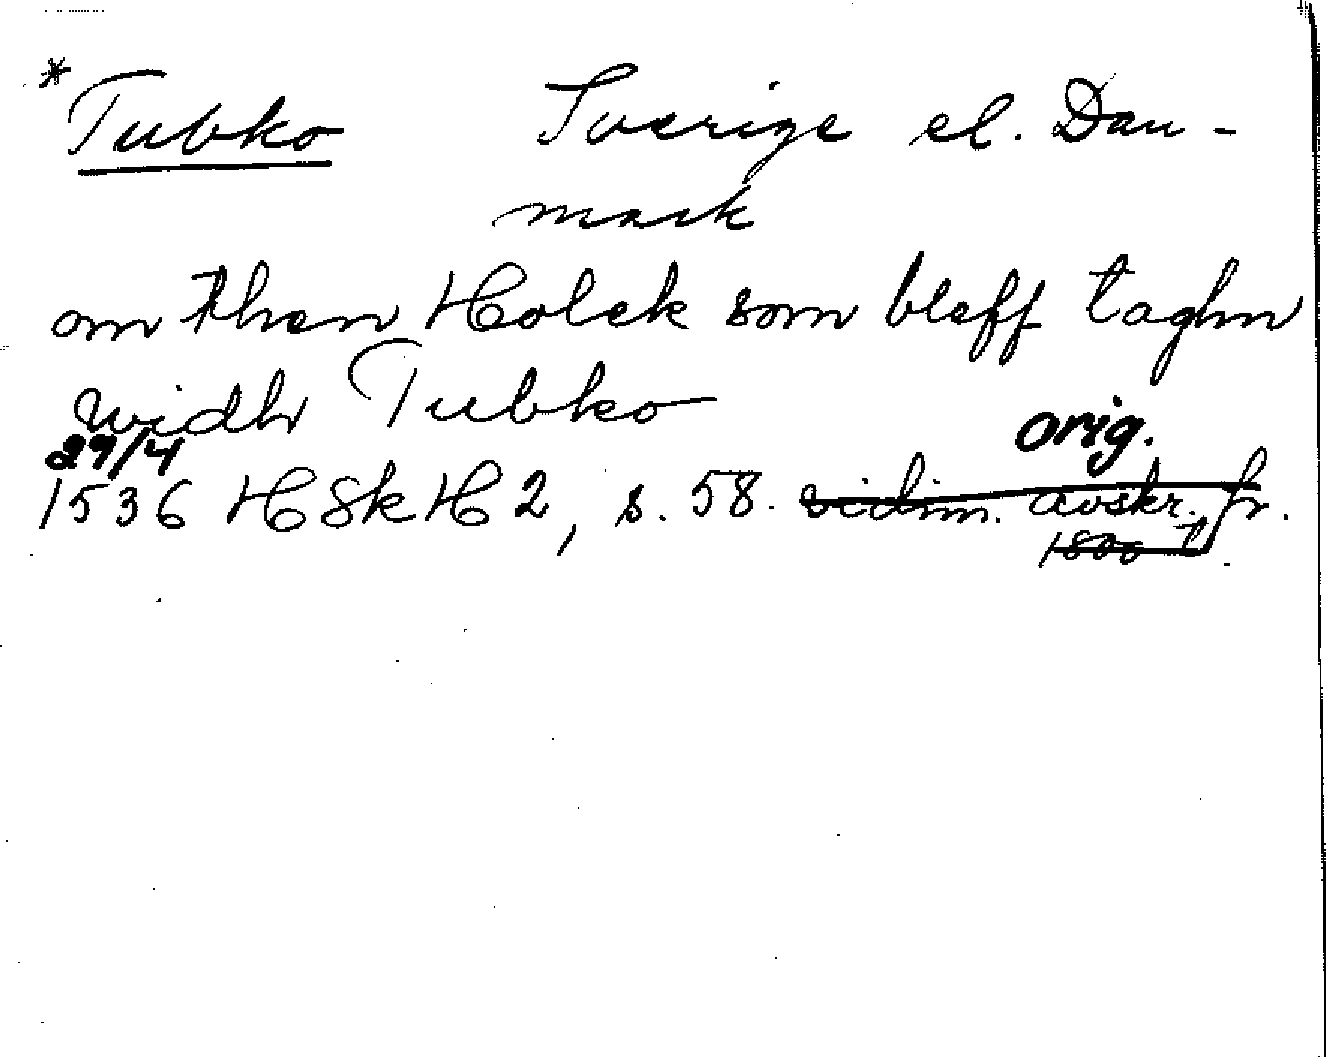 *Tubko Sverige el. Dan-
mark
om then Holck som bleff taghn
widh Tubko
29/4 orig.
1536 HSkH 2, s. 58. vidim. avskr. fr.
1800 t.